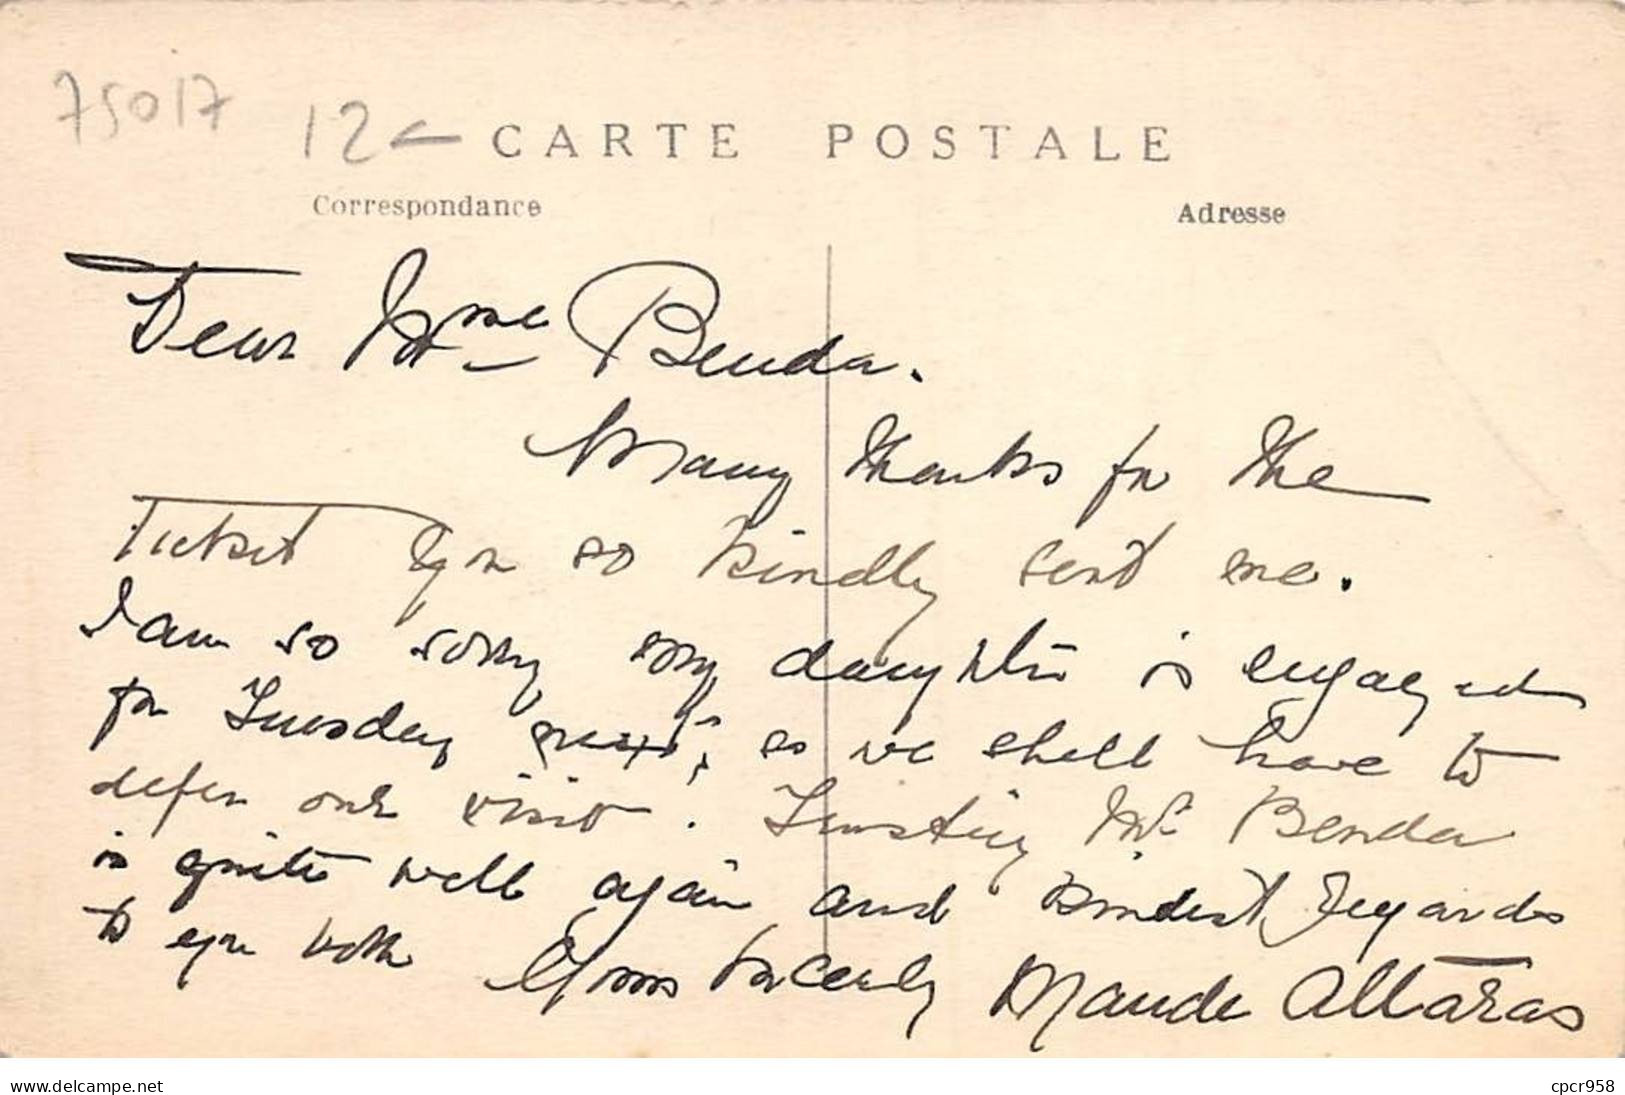 75017 12 ← CARTE POSTALE
Correspondance Adresse
Dear Mme Benda.
Many thanks for the
Ticket you so kindly sent me.
I am so sorry my daughter is engaged
for Tuesday next, so we shall have to
defer our visit. Trusting Mr Benda
is quite well again and kindest regards
to you both Yours sincerely Maude Altaras
www.delcampe.net cpcr958